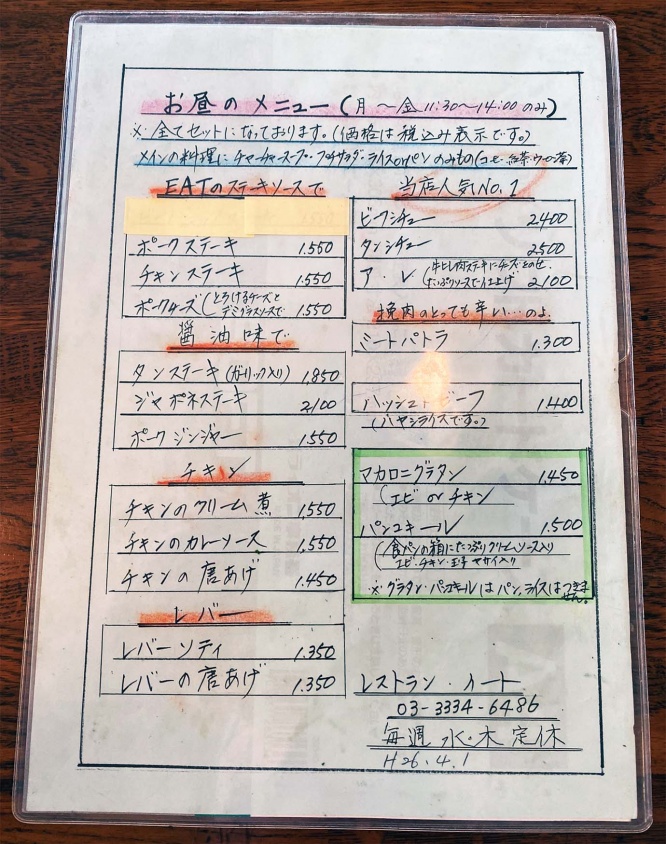 お昼のメニュー(月〜金11:30〜14:00のみ)
※全てセットになっております。(価格は税込み表示です。)
メインの料理にチャーチャースープ・プチサラダ・ライスorパン のみもの(コーヒー・紅茶・ウーロン茶)
EATのステーキソースで
ポークステーキ 1.550
チキンステーキ 1.550
ポークチーズ(とろけるチーズとデミグラスソースで 1.550
醤油味で
タンステーキ(ガーリック入り) 1.850
ジャポネステーキ 2100
ポークジンジャー 1.550
チキン
チキンのクリーム煮 1,550
チキンのカレーソース 1,550
チキンの唐あげ 1.450
レバー
レバーソティ 1.350
レバーの唐あげ 1.350
当店人気No.1
ビーフシチュー 2400
タンシチュー 2500
ア・レ(牛ヒレ肉ステーキにチーズをのせ、たっぷりソースで仕上げ 2100
挽肉のとっても辛い…のよ
ミートパトラ 1.300
ハッシュドビーフ 1400
(ハヤシライスです。)
マカロニグラタン 1.450
(エビorチキン
パンコキール 1.500
(食パンの箱にたっぷりクリームソース入り
エビ・チキン・玉子
※グラタン・パンコキールはパン、ライスはつきません。
レストラン・イート
03-3334-6486
毎週 水・木 定休
H26.4.1